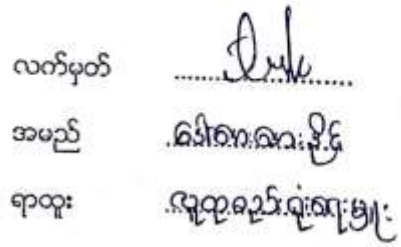 လက်မှတ်
အမည် ဒေါ်လာလားနိုင်
ရာထူး လူထုစည်းရုံးရေးမှူး